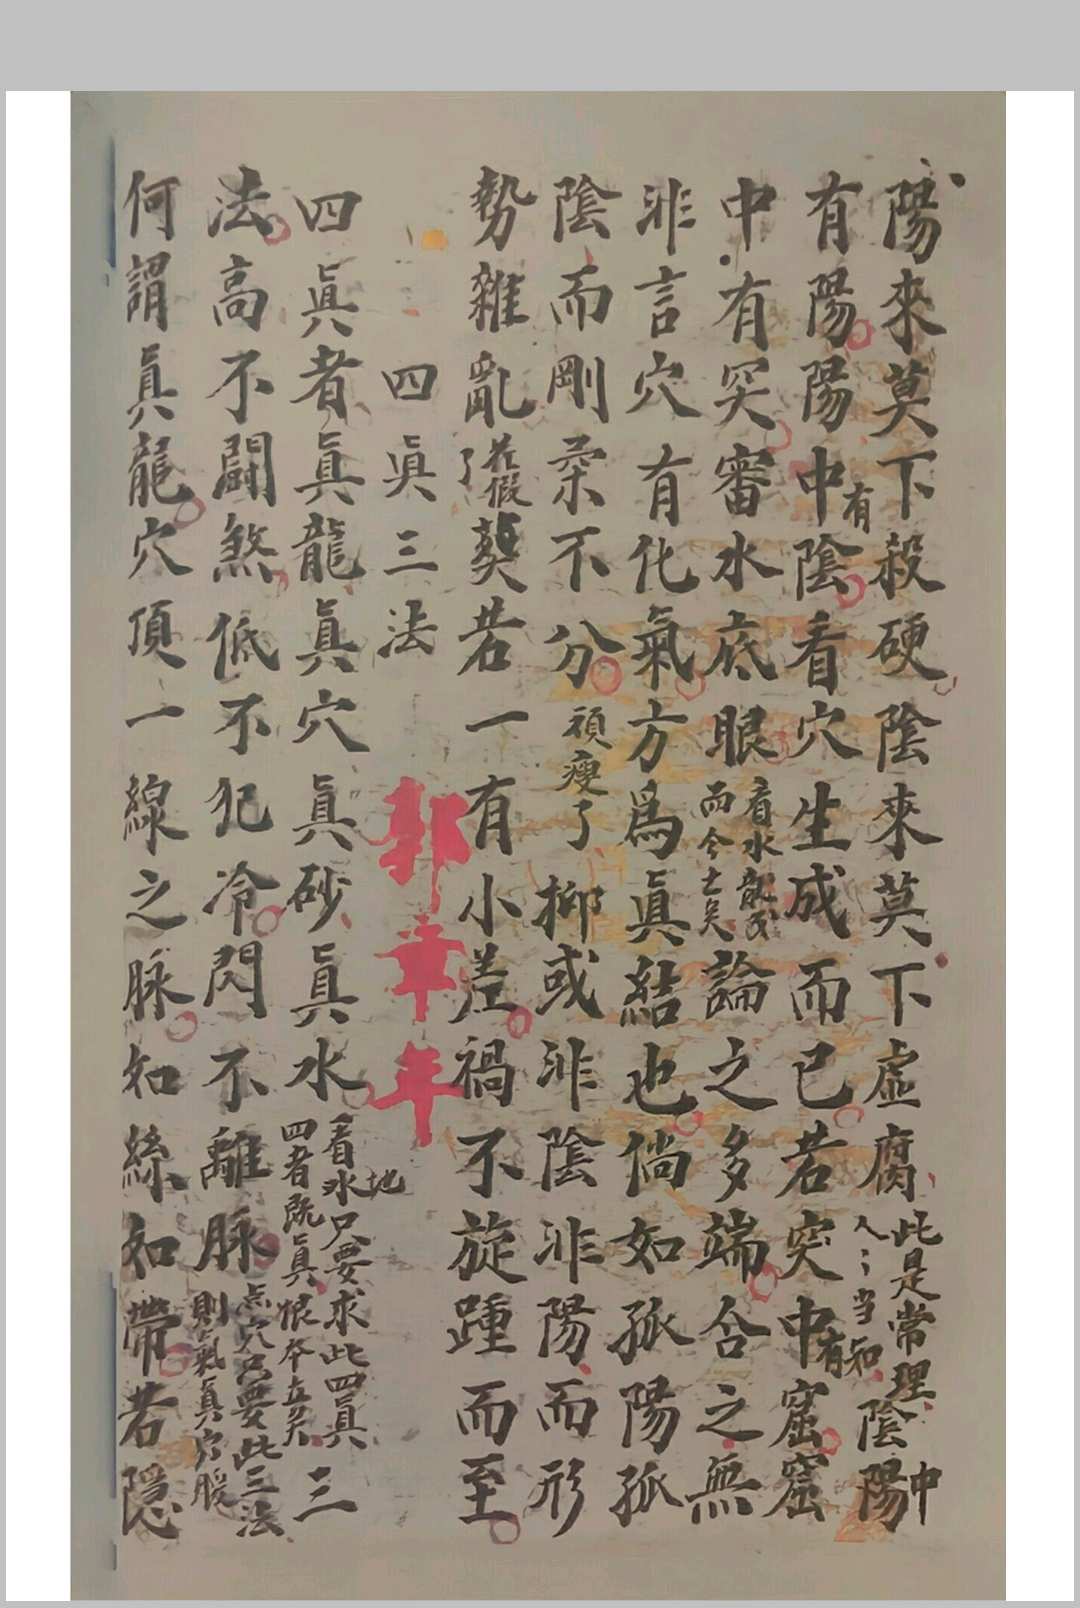 陽來莫下殺硬陰來莫下虛腐此是常理人〻当知陰陽中
有陽陽中有陰看穴生成而已若突中有窟窟
中有突審水底眼看水龍而今士矣論之多端含之無
非言穴有化氣方為眞結也倘如孤陽孤
陰而剛柔不分頑瘦了抑或非陰非陽而形
勢雜亂花假了葵若一有小差禍不旋踵而至
四眞三法
四眞者眞龍眞穴眞砂眞水看水只要求此四眞地四者既眞恨本立矣三
法高不鬭煞低不犯冷閃不離脉点穴只要此三法則氣眞穴暖
何謂眞龍穴頂一線之脉如絲如帶若隱
郭章年